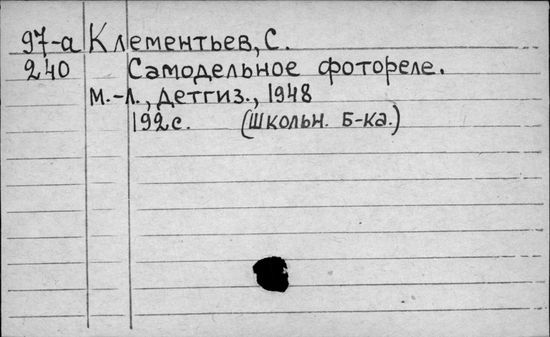 97-а Клементьев, С.
240 Самодельное фотореле.
М.-Л., Детгиз., 1948
192с. (Школьн. Б-ка.)